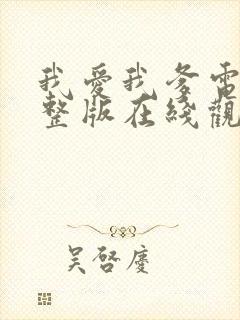 我愛我爹電
整版在綫觀
吴啓慶